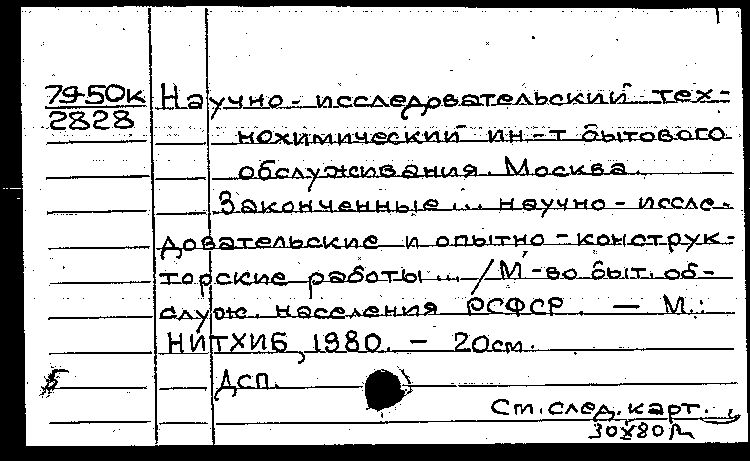 79-50к
2828
Научно-исследовательский тех-
нохимический ин-т бытового
обслуживания. Москва.
Законченные... научно-иссле-
довательские и опытно-конструк-
торские работы... /М-во быт. об-
служ. населения РСФСР. — М.:
НИТХИБ, 1980. — 20см.
Дсп.
См. след. карт.